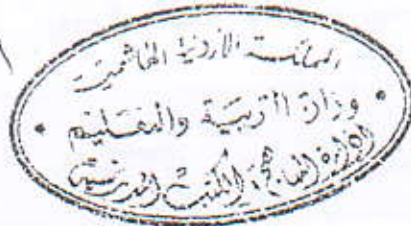 المملكة الأردنية الهاشمية
وزارة التربية والتعليم
إدارة المناهج والكتب المدرسية